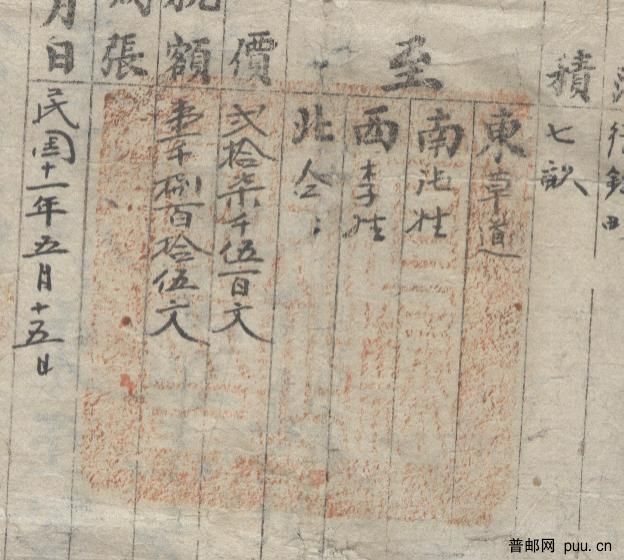 積 七畝
至
東 草道
南 沈姓
西 李姓
北 仝
價 弍拾柒千伍百文
額 壹千捌百拾伍文
張
月日 民国十一年五月十五日
普邮网 puu.cn